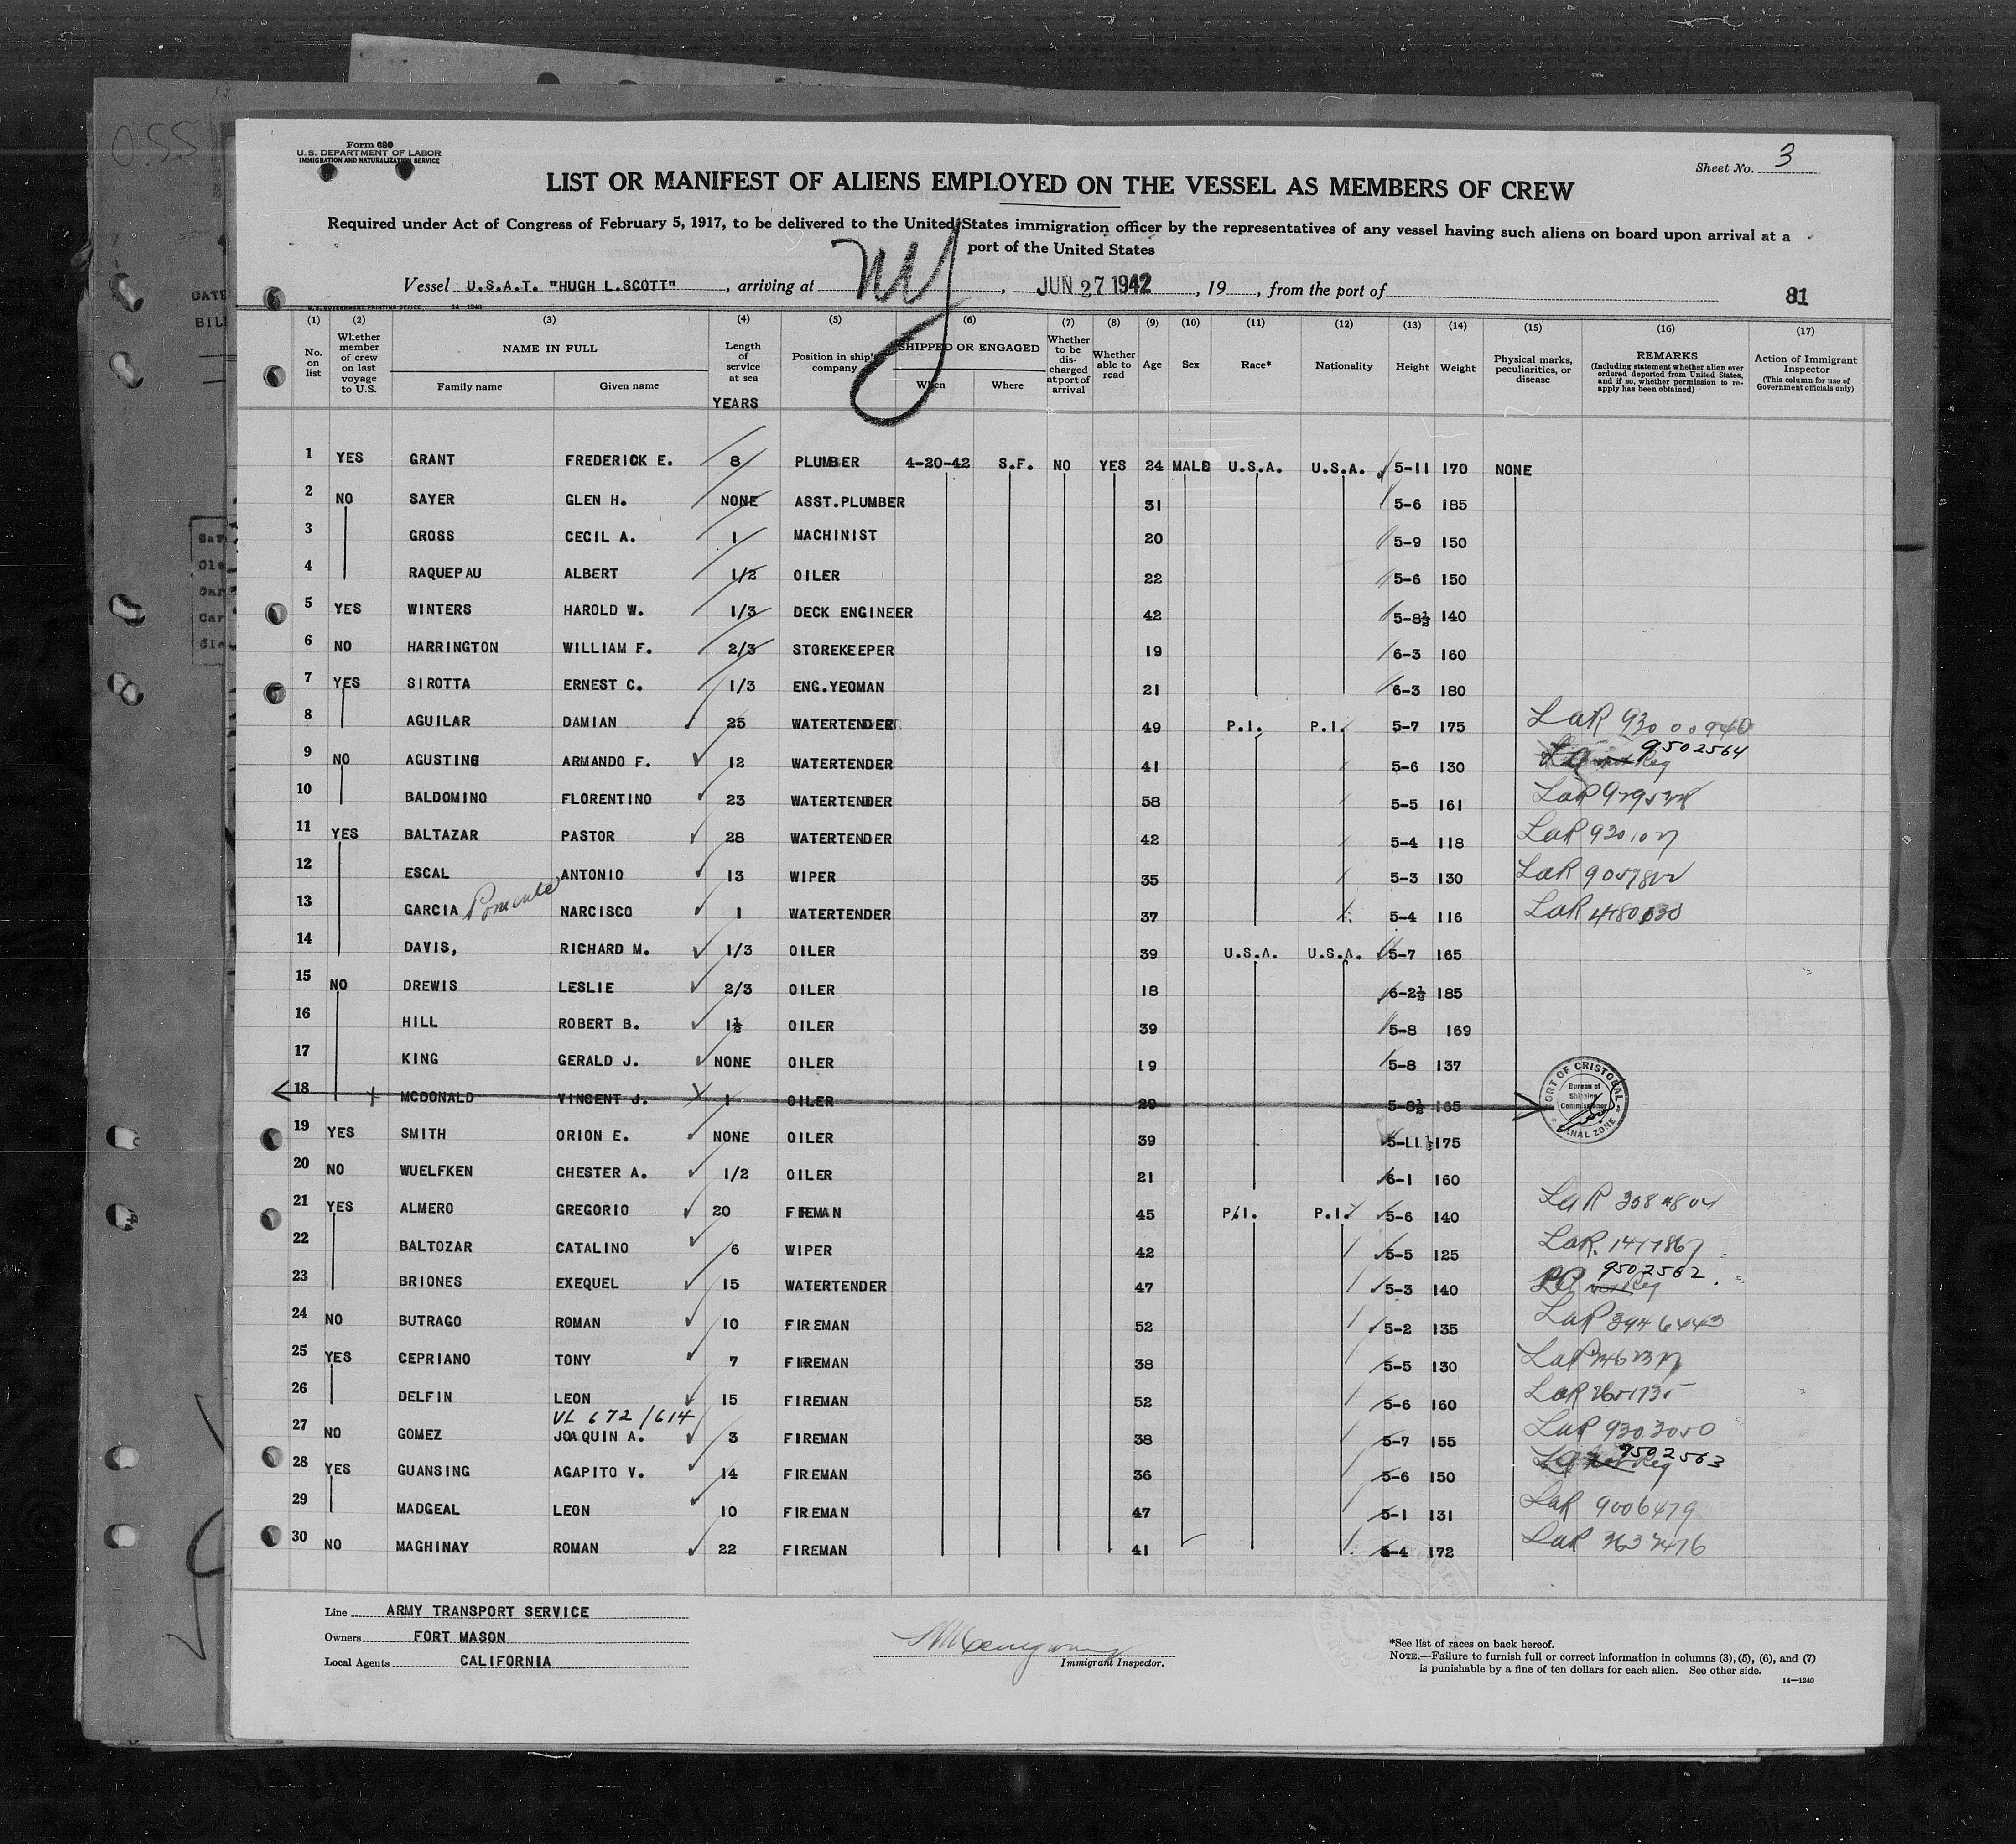 Form 680
U.S. DEPARTMENT OF LABOR
IMMIGRATION AND NATURALIZATION SERVICE
Sheet No. 3
LIST OR MANIFEST OF ALIENS EMPLOYED ON THE VESSEL AS MEMBERS OF CREW
Required under Act of Congress of February 5, 1917, to be delivered to the United States immigration officer by the representatives of any vessel having such aliens on board upon arrival at a
port of the United States
Vessel U.S.A.T. "HUGH L.SCOTT" , arriving at NY , JUN 27 1942 , 19 , from the port of
81
U.S. GOVERNMENT PRINTING OFFICE 14-1240
(1) (2) (3) (4) (5) (6) (7) (8) (9) (10) (11) (12) (13) (14) (15) (16) (17)
No. on list
Whether member of crew on last voyage to U.S.
NAME IN FULL
Family name Given name
Length of service at sea
YEARS
Position in ship's company
SHIPPED OR ENGAGED
When Where
Whether to be discharged at port of arrival
Whether able to read
Age Sex Race* Nationality Height Weight
Physical marks, peculiarities, or disease
REMARKS
(Including statement whether alien ever ordered deported from United States, and if so, whether permission to re-apply has been obtained)
Action of Immigrant Inspector
(This column for use of Government officials only)
1 YES GRANT FREDERICK E. 8 PLUMBER 4-20-42 S.F. NO YES 24 MALE U.S.A. U.S.A. 5-11 170 NONE
2 NO SAYER GLEN H. NONE ASST.PLUMBER 31 5-6 185
3 GROSS CECIL A. 1 MACHINIST 20 5-9 150
4 RAQUEPAU ALBERT 1/2 OILER 22 5-6 150
5 YES WINTERS HAROLD W. 1/3 DECK ENGINEER 42 5-8½ 140
6 NO HARRINGTON WILLIAM F. 2/3 STOREKEEPER 19 6-3 160
7 YES SIROTTA ERNEST C. 1/3 ENG.YEOMAN 21 6-3 180
8 AGUILAR DAMIAN 25 WATERTENDER 49 P.I. P.I. 5-7 175 LaR
9 NO AGUSTINO ARMANDO F. 12 WATERTENDER 41 5-6 130 9502564
10 BALDOMINO FLORENTINO 23 WATERTENDER 58 5-5 161 LaR
11 YES BALTAZAR PASTOR 28 WATERTENDER 42 5-4 118 LaR
12 ESCAL ANTONIO 13 WIPER 35 5-3 130 LaR
13 GARCIA NARCISCO 1 WATERTENDER 37 5-4 116 LaR
14 DAVIS, RICHARD M. 1/3 OILER 39 U.S.A. U.S.A. 5-7 165
15 NO DREWIS LESLIE 2/3 OILER 18 6-2½ 185
16 HILL ROBERT B. 1½ OILER 39 5-8 169
17 KING GERALD J. NONE OILER 19 5-8 137
18 MCDONALD VINCENT J. 1 OILER 20 5-8½ 165
PORT OF CRISTOBAL
Bureau of Shipping Commissioner
CANAL ZONE
19 YES SMITH ORION E. NONE OILER 39 5-11½ 175
20 NO WUELFKEN CHESTER A. 1/2 OILER 21 6-1 160
21 YES ALMERO GREGORIO 20 FIREMAN 45 P.I. P.I. 5-6 140 LaR
22 BALTOZAR CATALINO 6 WIPER 42 5-5 125 LaR.
23 BRIONES EXEQUEL 15 WATERTENDER 47 5-3 140 9502562
24 NO BUTRAGO ROMAN 10 FIREMAN 52 5-2 135 LaR 3946443
25 YES CEPRIANO TONY 7 FIREMAN 38 5-5 130 LaR
26 DELFIN LEON 15 FIREMAN 52 5-6 160 LaR
VL 672/614
27 NO GOMEZ JOAQUIN A. 3 FIREMAN 38 5-7 155 LaR 9303050
28 YES GUANSING AGAPITO V. 14 FIREMAN 36 5-6 150 9502563
29 MADGEAL LEON 10 FIREMAN 47 5-1 131 LaR 9006479
30 NO MAGHINAY ROMAN 22 FIREMAN 41 5-4 172 LaR
Line ARMY TRANSPORT SERVICE
Owners FORT MASON
Local Agents CALIFORNIA
Immigrant Inspector.
*See list of races on back hereof.
NOTE.—Failure to furnish full or correct information in columns (3), (5), (6), and (7)
is punishable by a fine of ten dollars for each alien. See other side.
14—1240